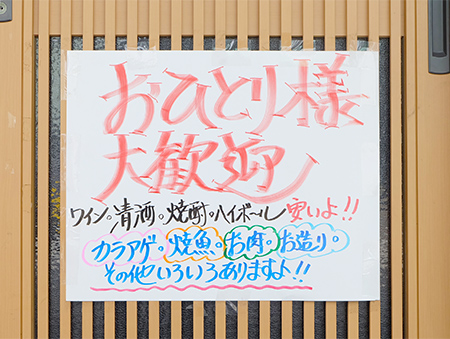 おひとり様
大歓迎
ワイン。清酒。焼酎。ハイボール 安いよ!!
カラアゲ。焼魚。お肉。お造り。
その他いろいろありますよ!!